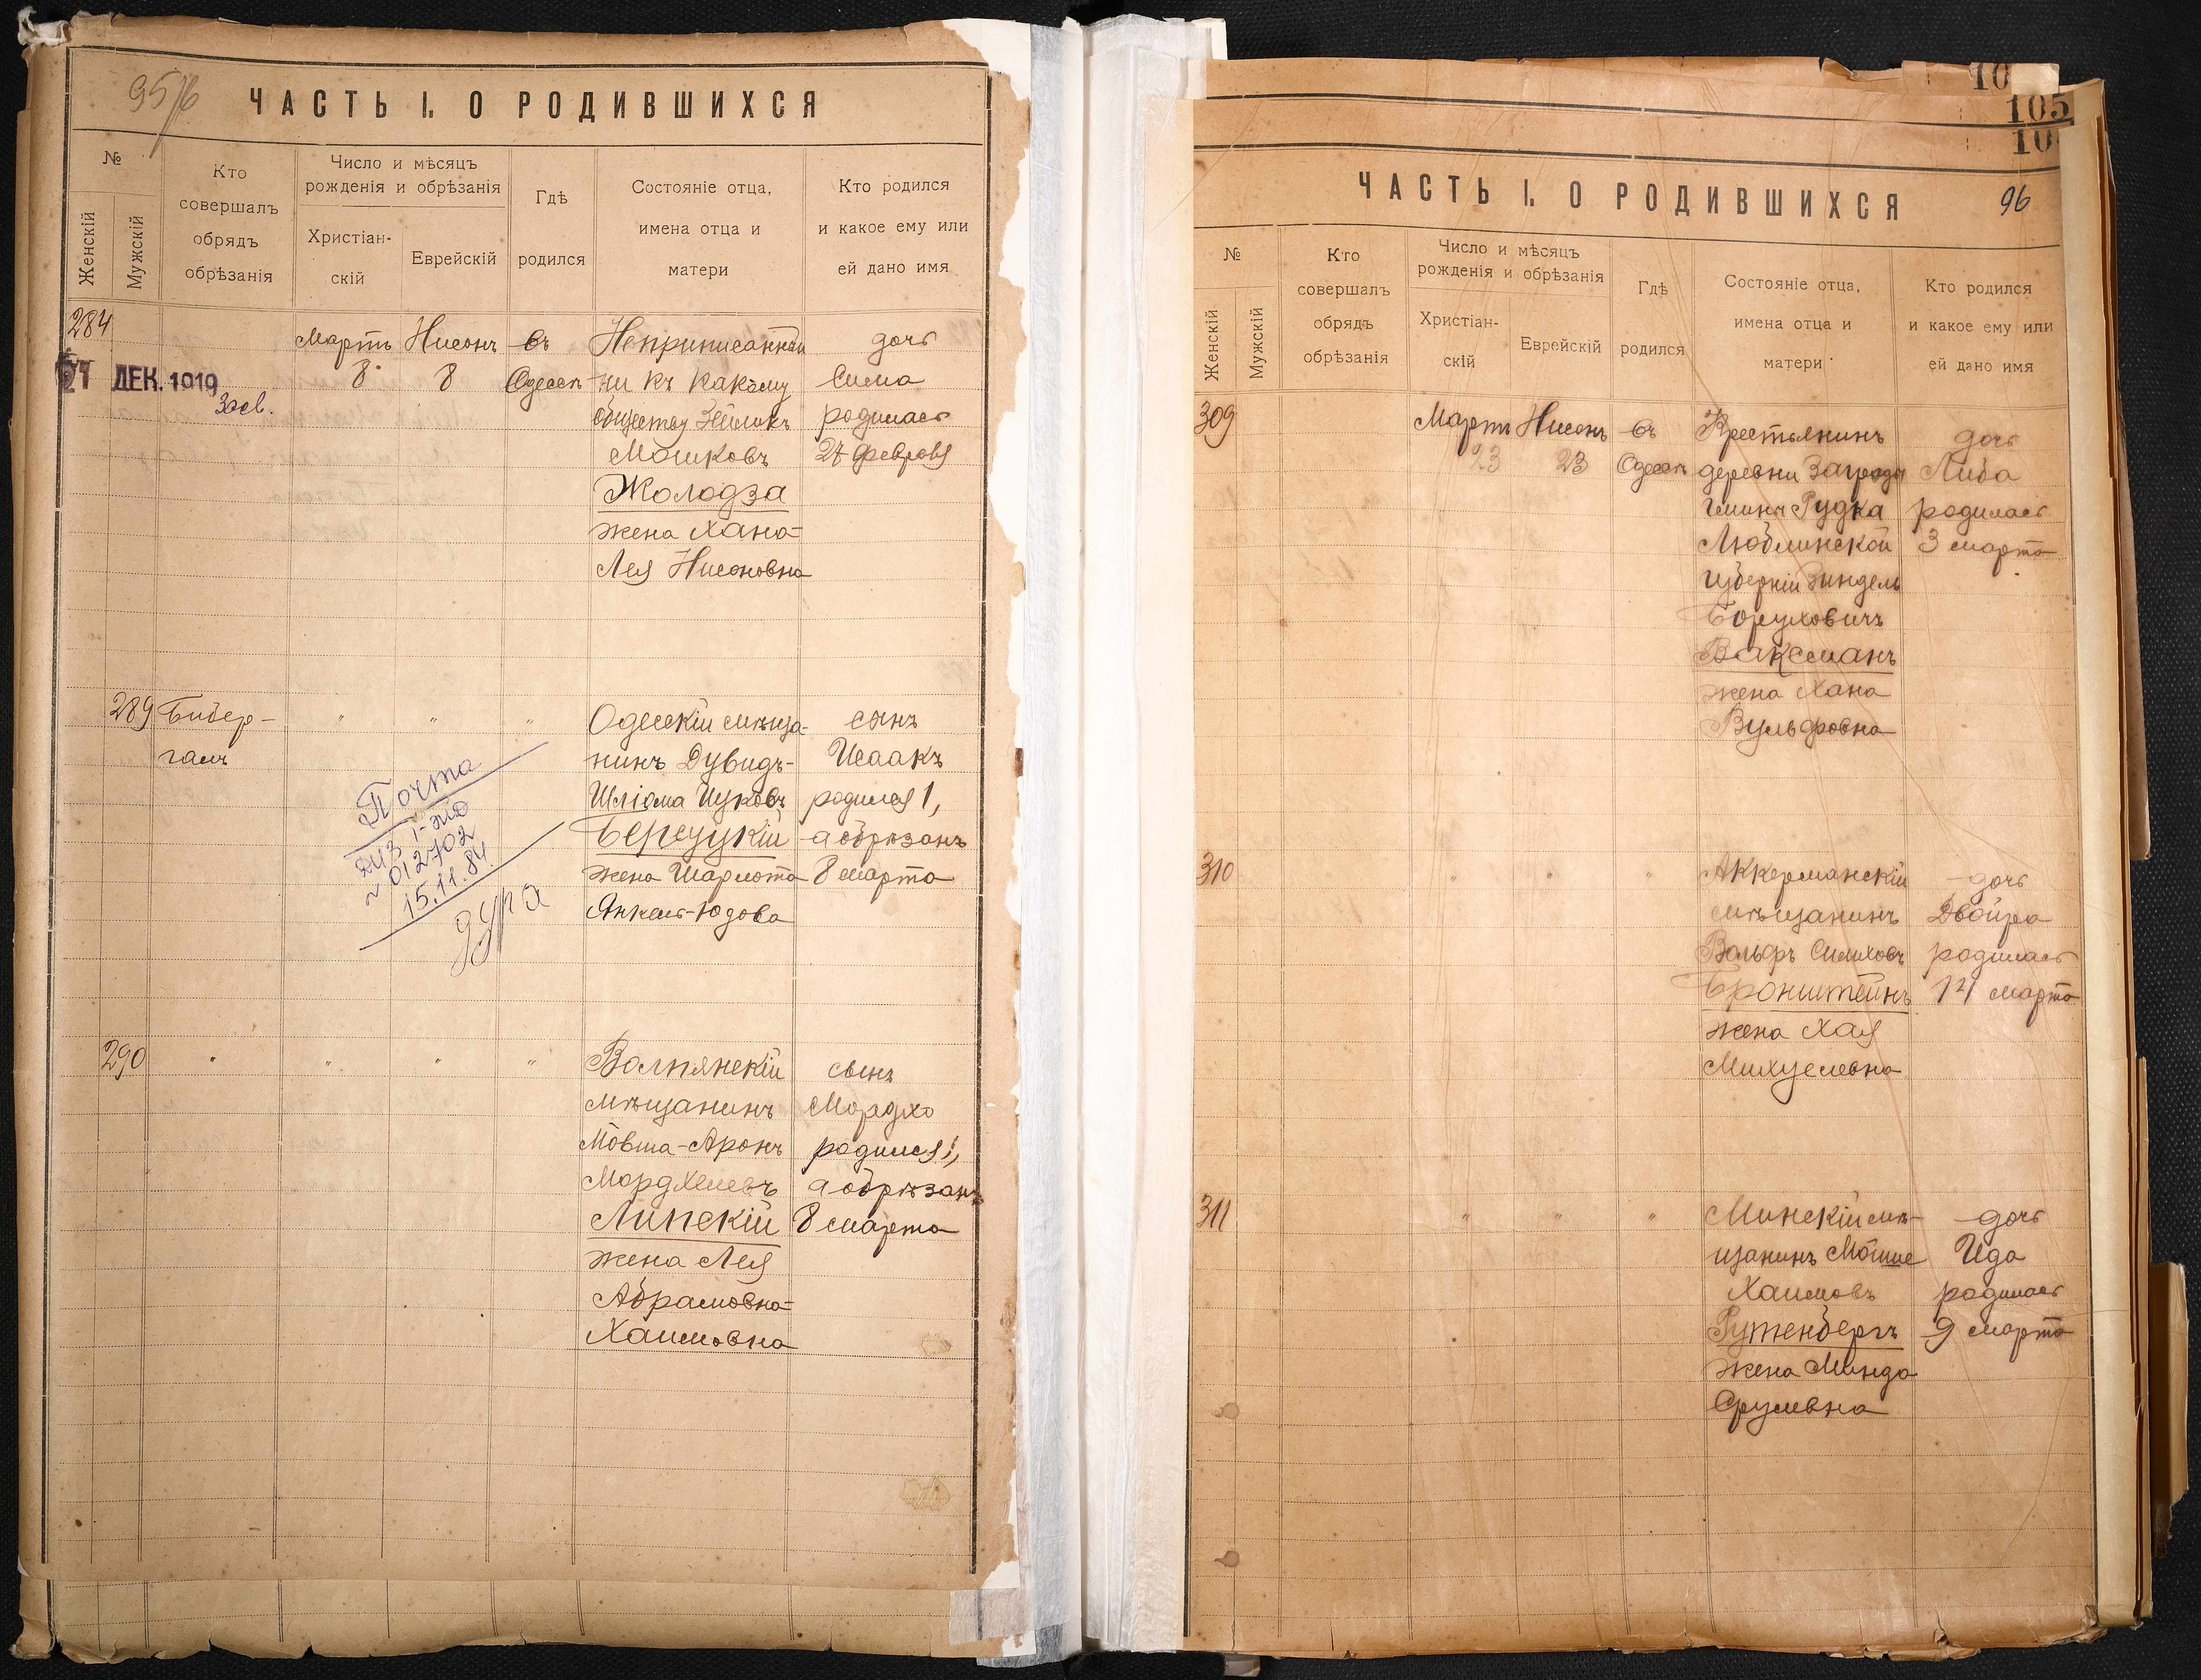 95/6
ЧАСТЬ I. О РОДИВШИХСЯ
№
Женскій
Мужскій
Кто
совершалъ
обрядъ
обрѣзанія
Число и мѣсяцъ
рожденія и обрѣзанія
Христіан-
скій
Еврейскій
Гдѣ
родился
Состояніе отца,
имена отца и
матери
Кто родился
и какое ему или
ей дано имя
284
ДЕК. 1919
Мартъ
8
Нисонъ
8
въ
Одессѣ
Неприписанный
ни къ какому
обществу Зейликъ
Мошковъ
Жолодза
жена Хана-
Лея Нисоновна
дочь
Сима
родилась
27 февраля
289
Бибер-
галъ
"
"
"
Одесскій мѣща-
нинъ Дувидъ-
Шліома Ицковъ
Берецукій
жена Шарлота
Янкель-Юдова
сынъ
Исаакъ
родился 1,
а обрѣзанъ
8 марта
Почта
012702
15.11.84
дура
290
"
"
"
"
Волпянскій
мѣщанинъ
Мовша-Аронъ
Мордхелевъ
Липскій
жена Лея
Абрамовна-
Хаимовна
сынъ
Мордхо
родился 1,
а обрѣзанъ
8 марта
10
105
10
ЧАСТЬ I. О РОДИВШИХСЯ
96
№
Женскій
Мужскій
Кто
совершалъ
обрядъ
обрѣзанія
Число и мѣсяцъ
рожденія и обрѣзанія
Христіан-
скій
Еврейскій
Гдѣ
родился
Состояніе отца,
имена отца и
матери
Кто родился
и какое ему или
ей дано имя
309
Мартъ
23
Нисонъ
23
въ
Одессѣ
Крестьянинъ
деревни Загрода
гмины Рудка
Люблинской
губерніи Зиндель
Боруховичъ
Ваксманъ
жена Хана
Вульфовна
дочь
Либа
родилась
3 марта
310
"
"
"
Аккерманскій
мѣщанинъ
Вольфъ Симховъ
Бронштейнъ
жена Хая
Михуелевна
дочь
Двойра
родилась
14 марта
311
"
"
"
Минскій мѣ-
щанинъ Мойше
Хаимовъ
Рутенбергъ
жена Минда
Срулевна
дочь
Ида
родилась
9 марта